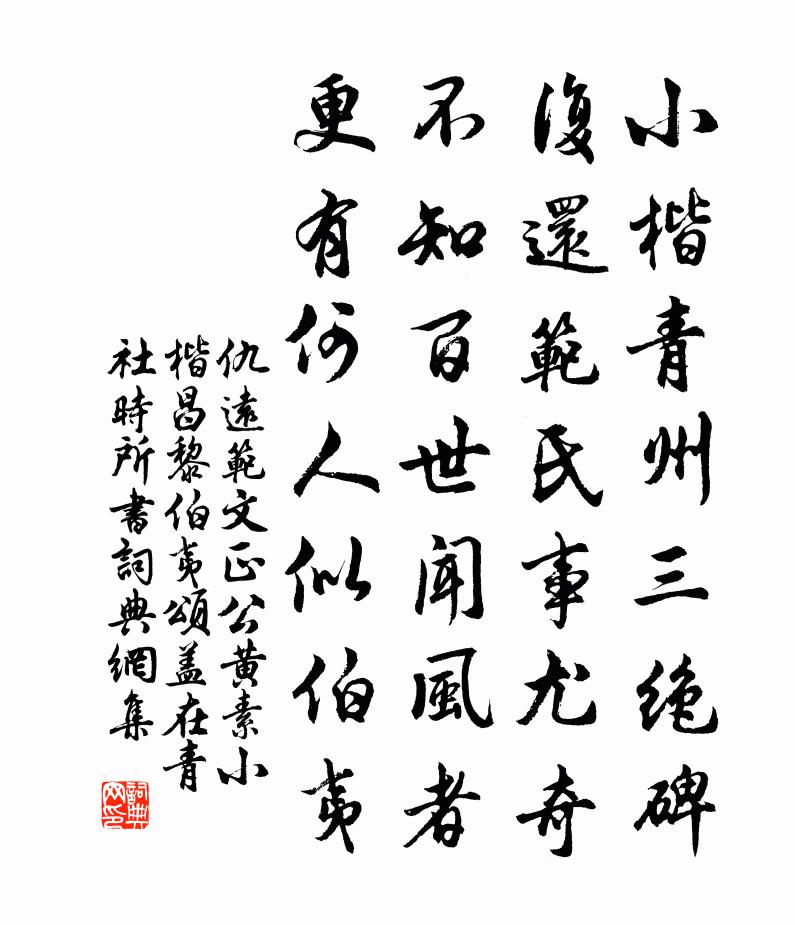 小楷青州三絶碑
復還範氏事尤奇
不知百世聞風者
更有何人似伯夷
仇遠範文正公黄素小
楷昌黎伯夷頌蓋在青
社時所書詞典網集
詞典网印